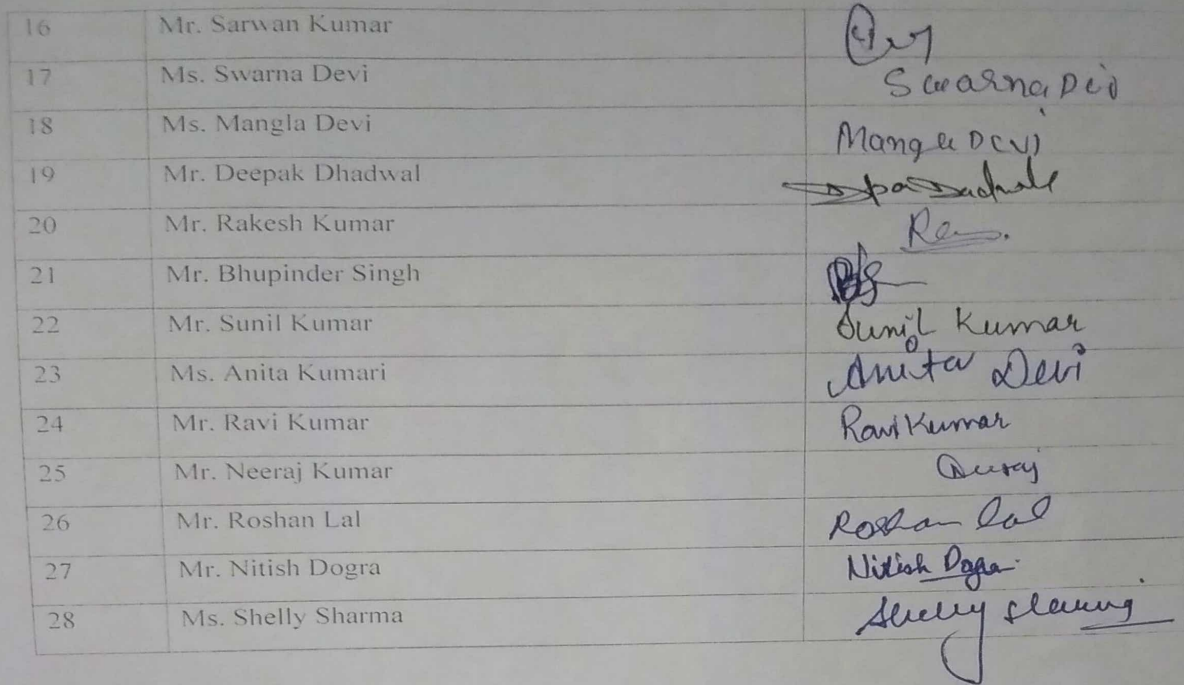 16 Mr. Sarwan Kumar
17 Ms. Swarna Devi Swarna Devi
18 Ms. Mangla Devi Mangla Devi
19 Mr. Deepak Dhadwal
20 Mr. Rakesh Kumar
21 Mr. Bhupinder Singh
22 Mr. Sunil Kumar Sunil Kumar
23 Ms. Anita Kumari Anita Devi
24 Mr. Ravi Kumar Ravi Kumar
25 Mr. Neeraj Kumar
26 Mr. Roshan Lal Roshan Lal
27 Mr. Nitish Dogra Nitish Dogra
28 Ms. Shelly Sharma Shelly Sharma